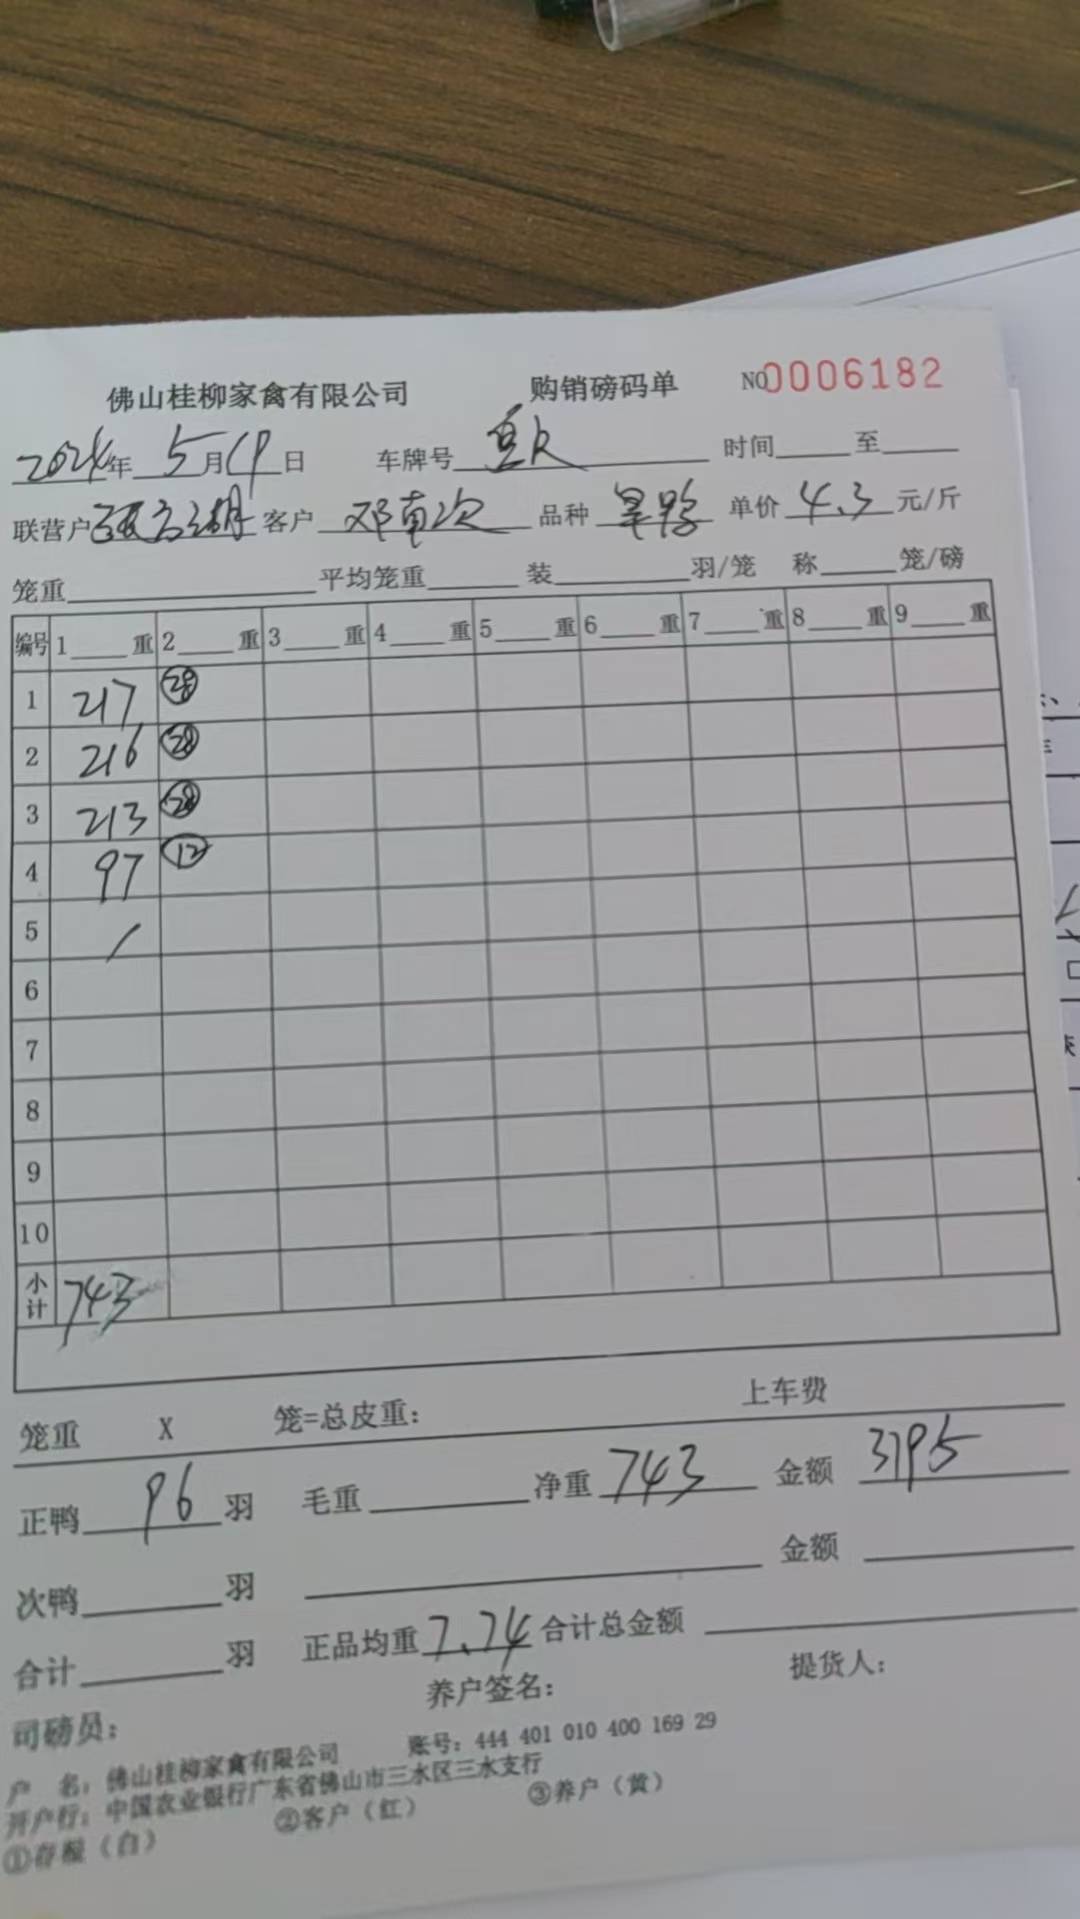 佛山桂柳家禽有限公司 购销磅码单 NO 0006182
2024年 5月19日 车牌号 时间 至
联营户 客户 邓 次 品种 旱鸭 单价 4.3 元/斤
笼重 平均笼重 装 羽/笼 称 笼/磅
编号 1 重 2 重 3 重 4 重 5 重 6 重 7 重 8 重 9 重
1 217 28
2 216 28
3 213 28
4 97 12
5 /
6
7
8
9
10
小计 743
笼重 X 笼=总皮重: 上车费
正鸭 96 羽 毛重 净重 743 金额 3195
次鸭 羽 金额
合计 羽 正品均重 7.74 合计总金额
司磅员: 养户签名: 提货人:
户 名: 佛山桂柳家禽有限公司 账号: 444 401 010 400 169 29
开户行: 中国农业银行广东省佛山市三水区三水支行
①存根（白） ②客户（红） ③养户（黄）